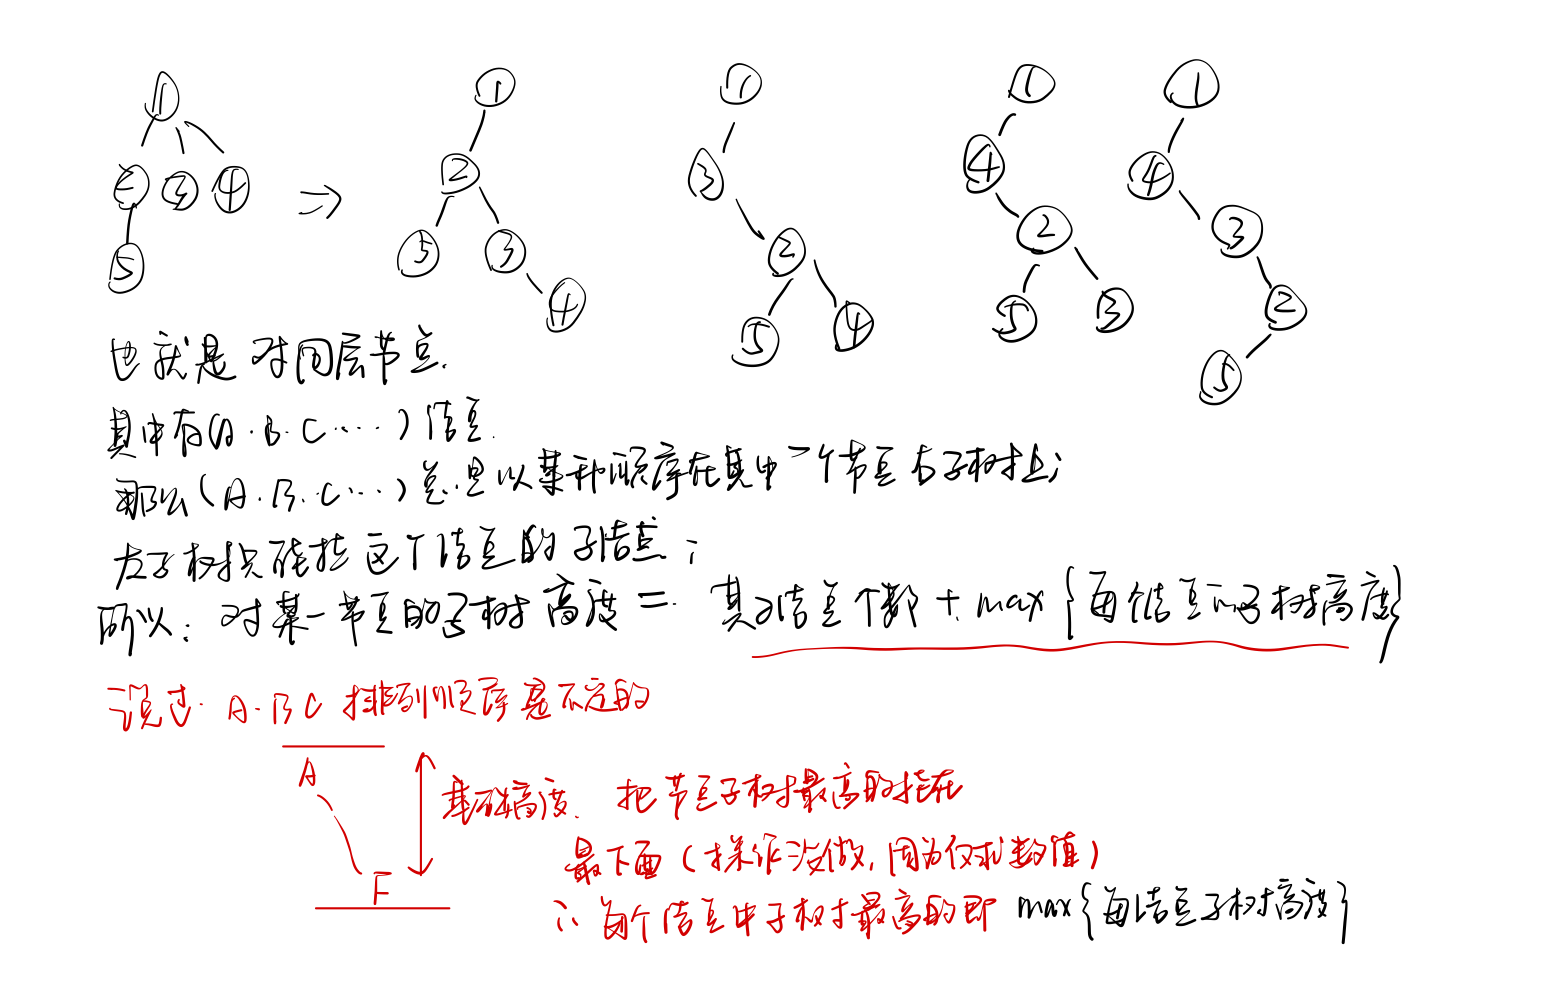 1 1 1 1 1
2 3 4 ⇒ 2 3 4 4
5 5 3 2 2 3
4 5 4 5 3 2
5
也就是 对同层节点.
其中有(A.B.C...)结点.
那么(A.B.C...)总是以某种顺序在其中一个节点右子树上;
左子树只能挂这个结点的子结点;
所以: 对某一节点的子树高度 = 其子结点个数 + max{每个结点的子树高度}
说过. A.B C 排列顺序是不定的
A
基础高度. 把节点子树最高的挂在
最下面(操作没做,因为仅求数值)
F
∴ 每个结点中子树最高的即 max{每结点子树高度}